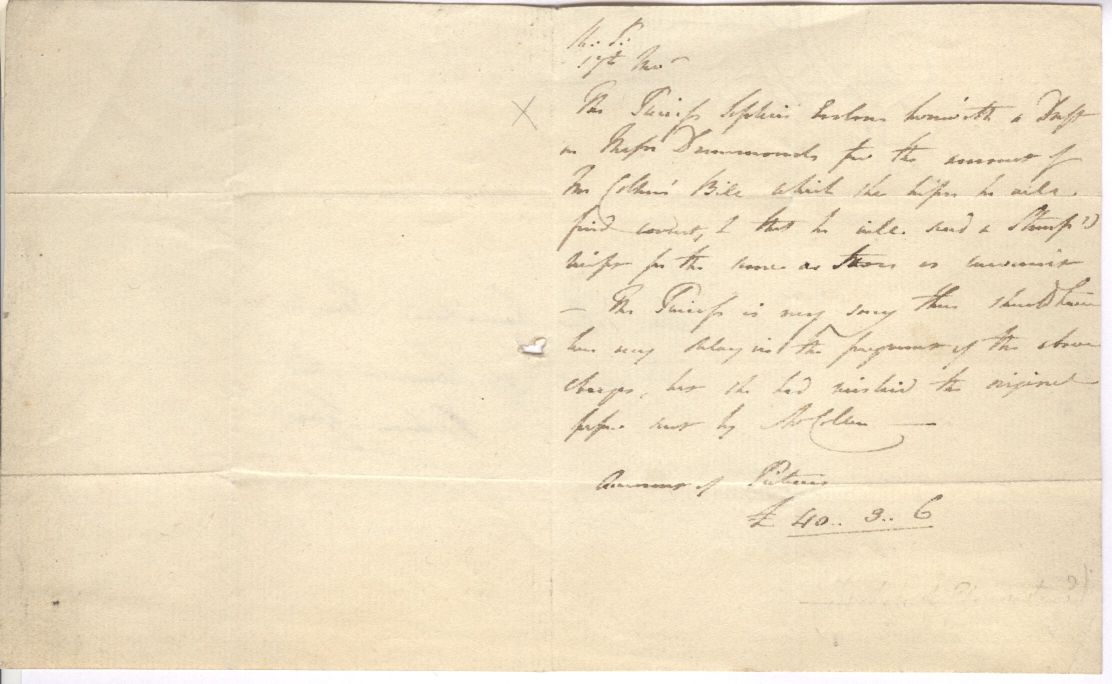 17th Novr
The Princess Sophia Encloses herewith a Draft
on Messrs Drummonds for the amount of
Mr Collen's Bill which she hopes he will
find correct, & that he will send a Stamp'd
for the same as soon as convenient
— The Princess is very sorry there should have
been any delay in the payment of the above
charges, but she had mislaid the original
paper sent by Mr Collen —
Amount of Pictures
£ 40.. 3.. 6